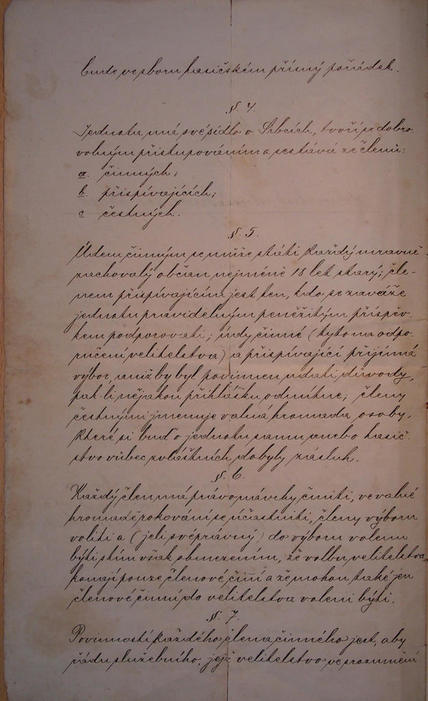 bude ve sboru hasičském přísný pořádek.
§ 4.
Jednota má své sídlo v Srbcích, tvoří se dobro-
volným přistupováním a sestává ze členů:
a činných;
b přispívajících;
c čestných.
§ 5.
Údem činným se může státi každý mravně
zachovalý občan nejméně 18 let starý; čle-
nem přispívajícím jest ten, kdo se zaváže
jednotu pravidelným peněžitým příspěv-
kem podporovati; údy činné (tyto na odpo-
ručení velitelstva) a přispívající přijímá
výbor, aniž by byl povinnen udati důvody,
pak-li nějakou přihlášku odmítne; členy
čestnými jmenuje valná hromada osoby,
které si buď o jednotu samu anebo hasič
stvo vůbec zvláštních dobyly zásluh.
§ 6.
Každý člen má právo návrhy činiti, ve valné
hromadě rokování se účastniti, členy výboru
voliti a (jeli svéprávný) do výboru volenu
býti, s tím však obmezením, že volbu velitelstva
konají pouze členové činí a že mohou také jen
členové činní do velitelstva voleni býti.
§ 7.
Povinností každého člena činného jest, aby
řádu služebního, jejž velitelstvo ve srozumění